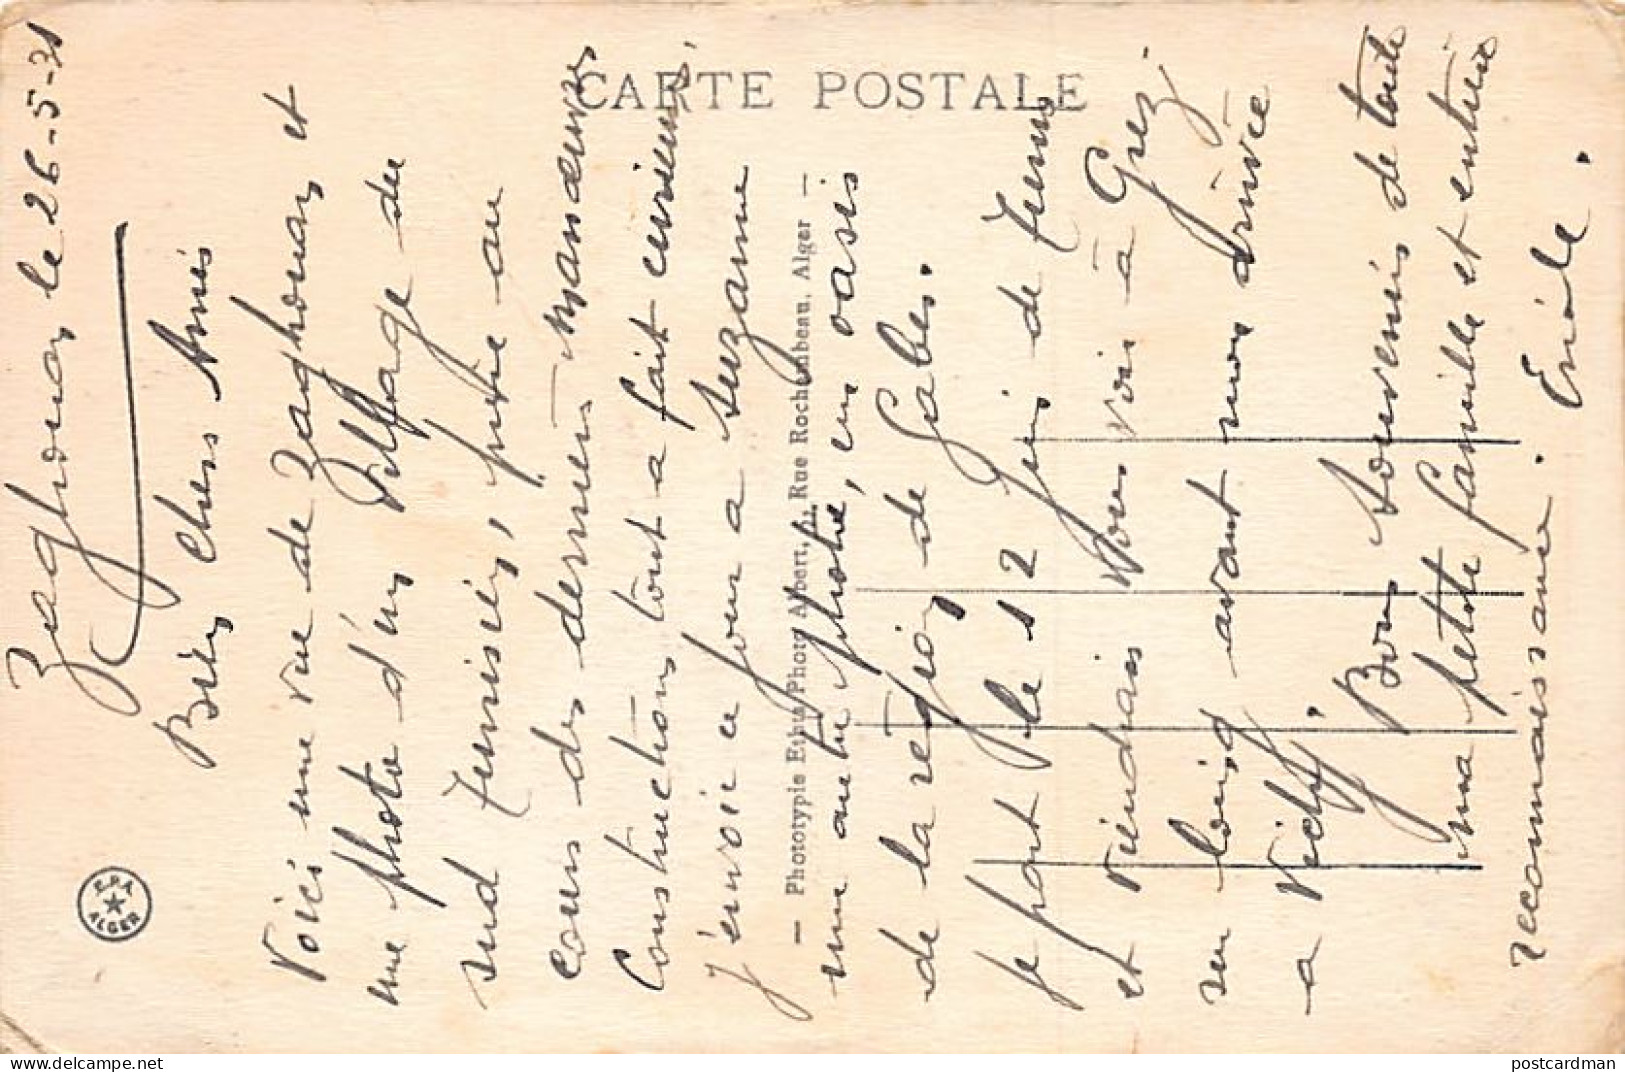 CARTE POSTALE
E.P.A. ALGER
— Phototypie Etab. Photo Albert, 5, Rue Rochambeau, Alger —
Zaghouan, le 26-5-31
Bien chers Amis
Voici une vue de Zaghouan, et
une photo d'un village du
sud Tunisien, prise au
cours des dernières manœuvres
Construction tout a fait curieuse,
J'envoie ce jour a Suzanne
une autre photo, un oasis
de la région de Gabes.
Je part le 12 Juin de Tunis
et viendrais vous voir à Grez
sur Loing avant mon arrivée
a Vichy, Bons souvenirs de toute
ma petite famille et entière
reconnaissance.